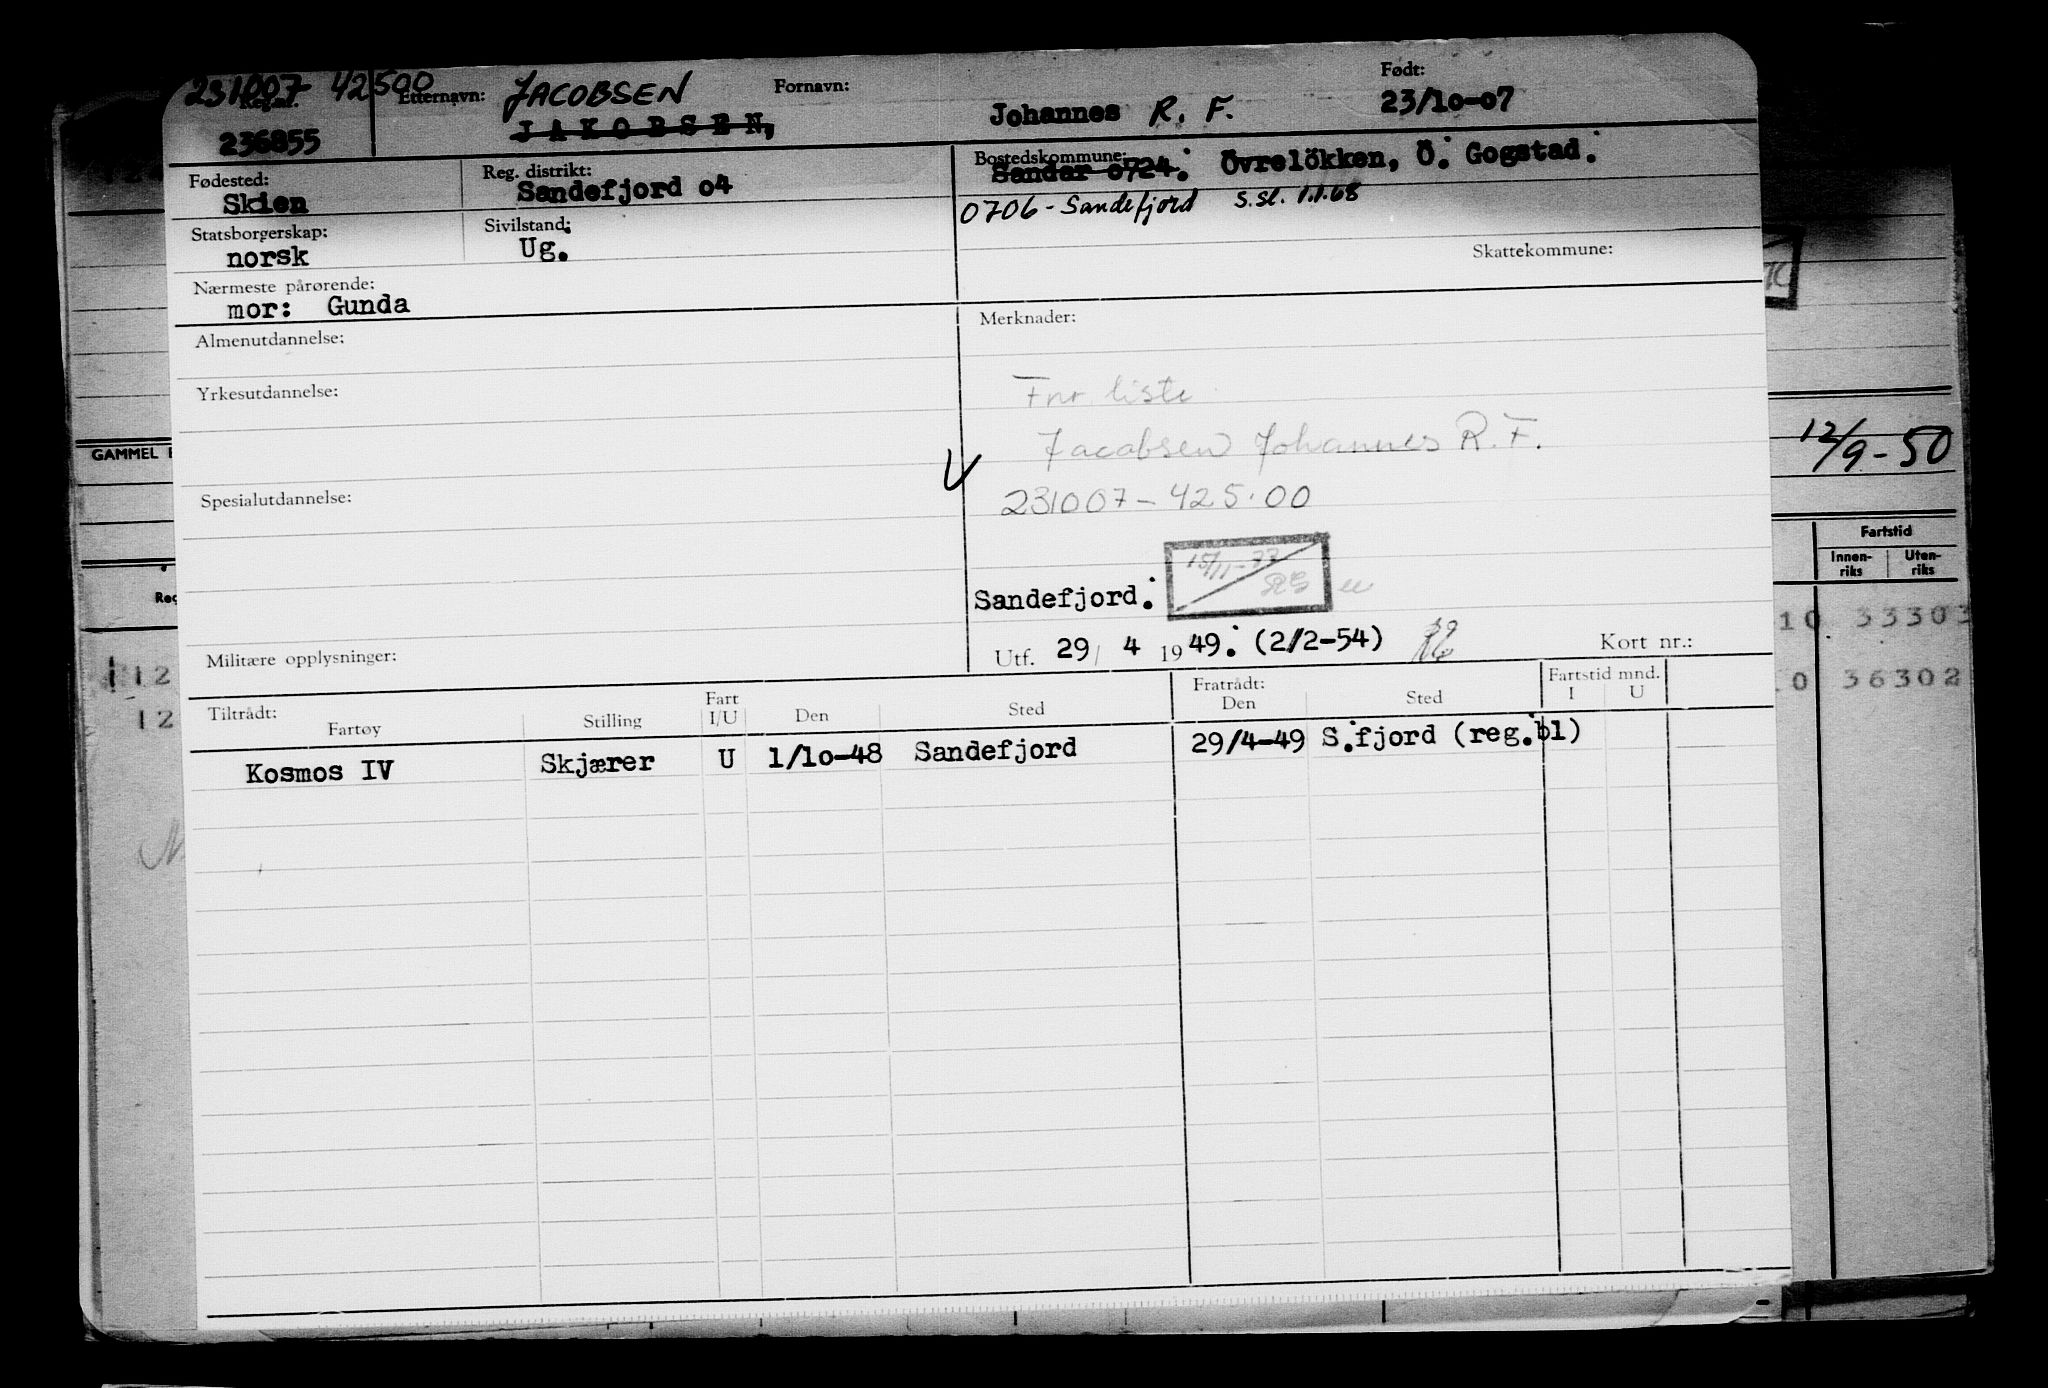 231007 42500 Etternavn: JACOBSEN Fornavn: Født:
Reg.nr. JAKOBSEN, Johannes R. F. 23/10-07
236855
Fødested: Reg. distrikt: Bostedskommune:
Skien Sandefjord o4 Sandar o724. Övrelökken, Ö. Gogstad.
0706 - Sandefjord S.sl. 1.1.68
Statsborgerskap: Sivilstand:
norsk Ug. Skattekommune:
Nærmeste pårørende:
mor: Gunda
Almenutdannelse: Merknader:
Yrkesutdannelse: Fnr. liste
Jacobsen Johannes R. F.
Spesialutdannelse: 231007 - 425.00
15/11-77
Sandefjord.
Militære opplysninger: Utf. 29/ 4 1949. (2/2-54) Kort nr.:
Tiltrådt: Fart Fratrådt: Fartstid mnd.
Fartøy Stilling I/U Den Sted Den Sted I U
Kosmos IV Skjærer U 1/1o-48 Sandefjord 29/4-49 S.fjord (reg.bl)
GAMMEL
12/9-50
Fartstid
Innen-riks Uten-riks
10 33303
0 36302
12
12